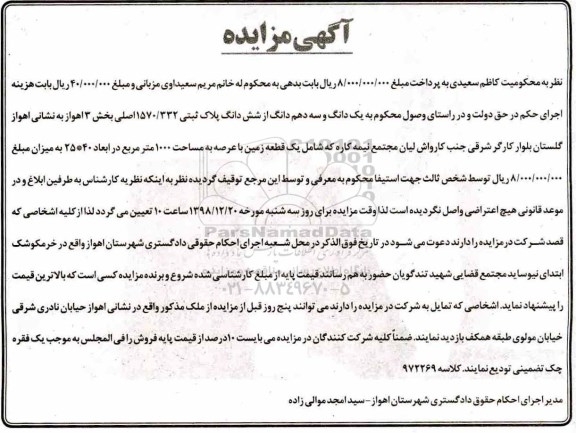 آگهی مزایده
نظر به محکومیت کاظم سعیدی به پرداخت مبلغ ۸/۰۰۰/۰۰۰/۰۰۰ ریال بابت بدهی به محکوم له خانم مریم سعیداوی مزبانی و مبلغ ۴۰/۰۰۰/۰۰۰ ریال بابت هزینه
اجرای حکم در حق دولت و در راستای وصول محکوم به یک دانگ و سه دهم دانگ از شش دانگ پلاک ثبتی ۱۵۷۰/۳۳۲ اصلی بخش ۳ اهواز به نشانی اهواز
گلستان بلوار کارگر شرقی جنب کارواش لیان مجتمع نیمه کاره که شامل یک قطعه زمین با عرصه به مساحت ۱۰۰۰ متر مربع در ابعاد ۴۰*۲۵ به میزان مبلغ
۸/۰۰۰/۰۰۰/۰۰۰ ریال توسط شخص ثالث جهت استیفا محکوم به معرفی و توسط این مرجع توقیف گردیده نظر به اینکه نظریه کارشناس به طرفین ابلاغ و در
موعد قانونی هیچ اعتراضی واصل نگردیده است لذا وقت مزایده برای روز سه شنبه مورخه ۱۳۹۸/۱۲/۲۰ ساعت ۱۰ تعیین می گردد لذا از کلیه اشخاصی که
قصد شرکت در مزایده را دارند دعوت می شود در تاریخ فوق الذکر در محل شعبه اجرای احکام حقوقی دادگستری شهرستان اهواز واقع در خرمکوشک
ابتدای نیوساید مجتمع قضایی شهید تندگویان حضور به هم رسانند قیمت پایه از مبلغ کارشناسی شده شروع و برنده مزایده کسی است که بالاترین قیمت
را پیشنهاد نماید. اشخاصی که تمایل به شرکت در مزایده را دارند می توانند پنج روز قبل از مزایده از ملک مذکور واقع در نشانی اهواز خیابان نادری شرقی
خیابان مولوی طبقه همکف بازدید نمایند. ضمناً کلیه شرکت کنندگان در مزایده می بایست ۱۰ درصد از قیمت پایه فروش رافی المجلس به موجب یک فقره
چک تضمینی تودیع نمایند. کلاسه ۹۷۲۲۶۹
مدیر اجرای احکام حقوق دادگستری شهرستان اهواز - سید امجد موالی زاده
ParsNamadData
۰۲۱-۸۸۳۴۹۶۷۰-۵